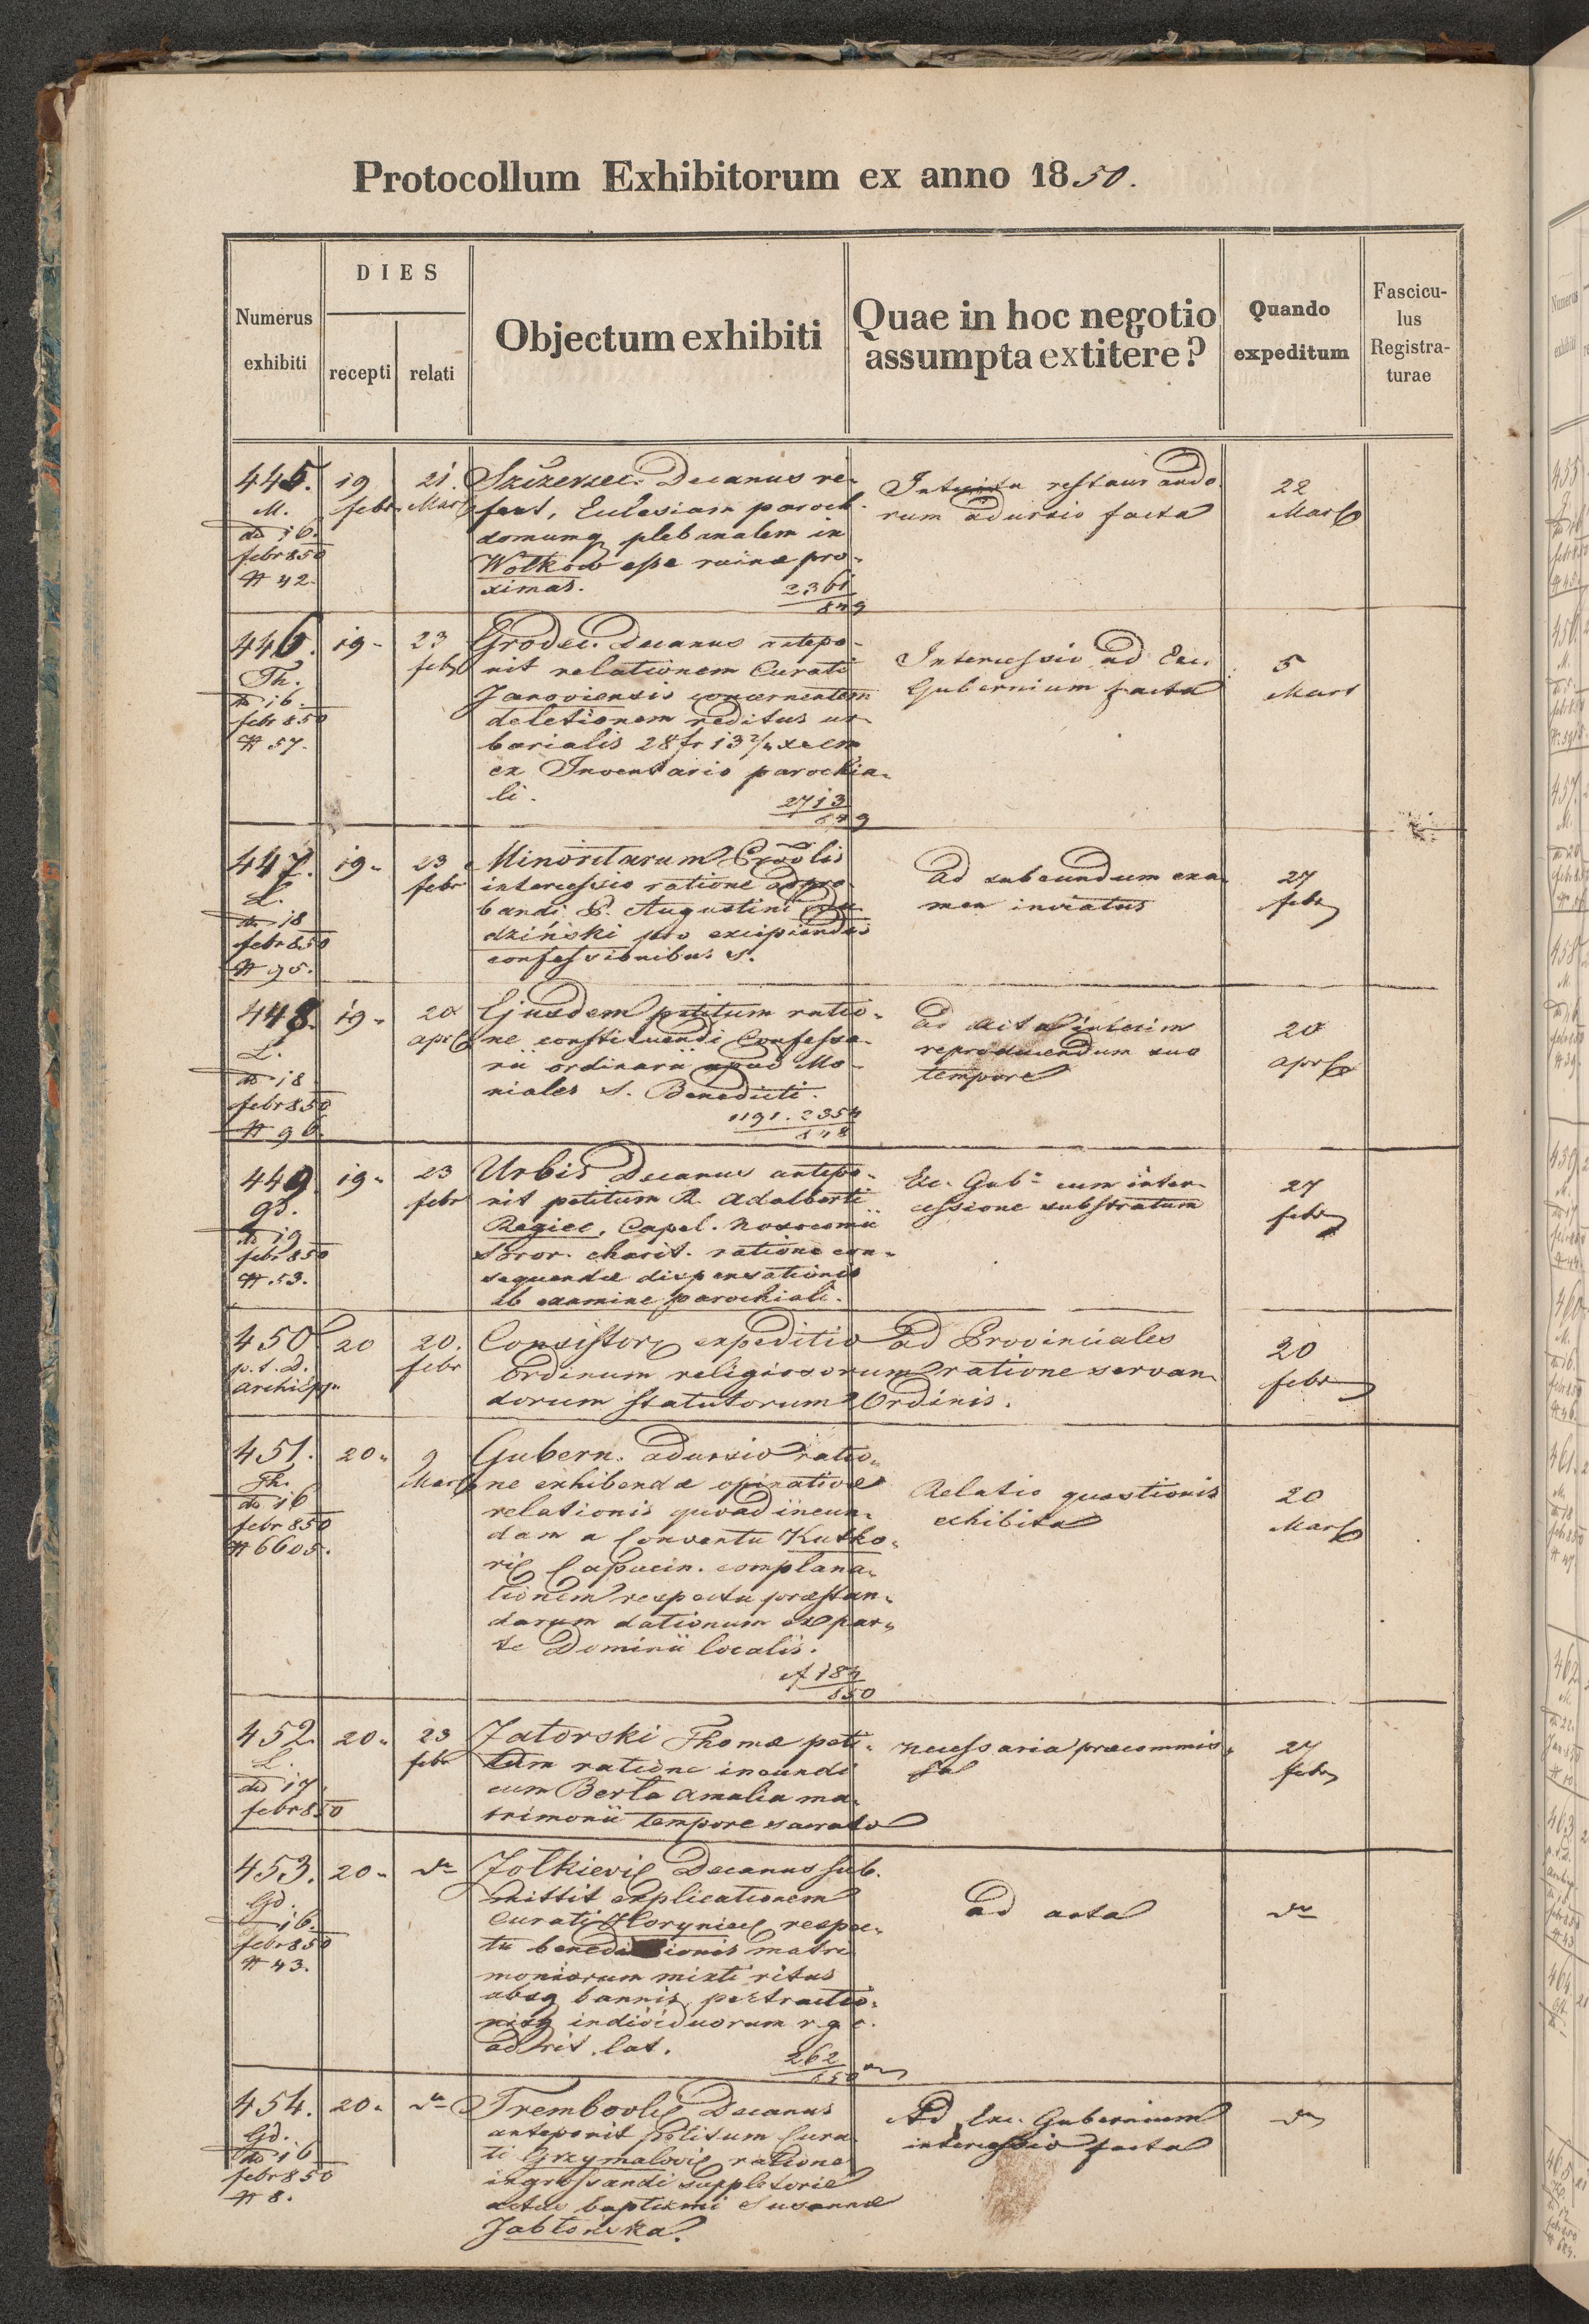 Protocollum Exhibitorum ex anno 1850.
Numerus
exhibiti
DIES
recepti
relati
Objectum exhibiti
Quae in hoc negotio
assumpta extitere?
Quando
expeditum
Fascicu-
lus
Registra-
turae
445.
M.
dd 16.
febr 850
# 42.
19
febr.
21.
Mart
Szczerzec. Decanus re-
fert, Ecclesiam paroch.
domumq plebanalem in
Wołkow esse ruinæ pro-
ximas.
2361
849
restaurando-
rum adursio facta
22
Mart
446.
Th.
dd 16.
febr 850
# 57.
19-
23
febr
Grodec. Decanus antepo-
nit relationem Curati
Janoviensis concernentem
deletionem reditus ur-
barialis 28 fr 13 2/4 xr cm
ex Inventario parochia-
li.
2713
849
Intercessio ad Exc.
Gubernium facta
5
Mart
447.
L.
dd 18
febr 850
# 95.
19-
23
febr
Minoritarum Provlis
intercessio ratione adpro-
bandi P. Augustini
dziński pro excipiendis
confessionibus S.
Ad subeundum exa-
men inviatus
27
febr
448.
L.
dd 18
febr 850
# 96.
19-
20
apr
Ejusdem petitum ratio-
ne constituendi Confessa-
rii ordinarii apud Mo-
niales S. Benedicti.
1191. 2354
848
ad acta interim
reproducendum suo
tempore
20
apr
449
gd.
dd 19
febr 850
# 53.
19-
23
febr
Urbis Decanus antepo-
nit petitum R. Adalberti
Regiec, Capel. Nosocomii
Soror. charit. ratione con-
sequendæ dispensationis
ab examine parochiali.
Exc. Gub- cum inter-
cessione substratum
27
febr
450
p.t.d.
Archiepp.
20
20.
febr
Consistor expeditio ad Provinciales
Ordinum religiosorum ratione servan-
dorum statutorum Ordinis.
20
febr
451.
Th.
dd 16
febr 850
# 6605.
20-
9
Mart
Gubern. adursio ratio-
ne exhibendæ opinativæ
relationis quoad ineun-
dam a Conventu Kutko-
ric Capucin. complana-
tionem respectu præstan-
darum dationum ex par-
te Dominii localis.
A 184
850
Relatio quæstionis
exhibita
20
Mart
452.
L.
dd 17.
febr 850
20-
23
febr
Jatorski Thomæ peti-
tum ratione ineundi
cum Berta Amalia ma-
trimonii tempore sacrato
necessaria præcommis-
sa
27
febr
453.
Gd.
16.
febr 850
# 43.
20-
do
Zolkievic Decanus sub-
mittit explicationem
Curati Horyniec respec-
tu benedictionis matri-
moniorum mixti ritus
absq bannis, pertractio-
nisq individuorum r. g. c.
ad rit. lat.
262
850
ad acta
do
454.
Gd.
dd 16
febr 850
# 8.
20-
do
Trembovlic Decanus
anteponit petitum Cura-
ti Grzymalovic ratione
ingrossandi suppletorie
actus baptismi Susannæ
Jabłońska.
Ad Exc. Gubernium
intercessio facta
do